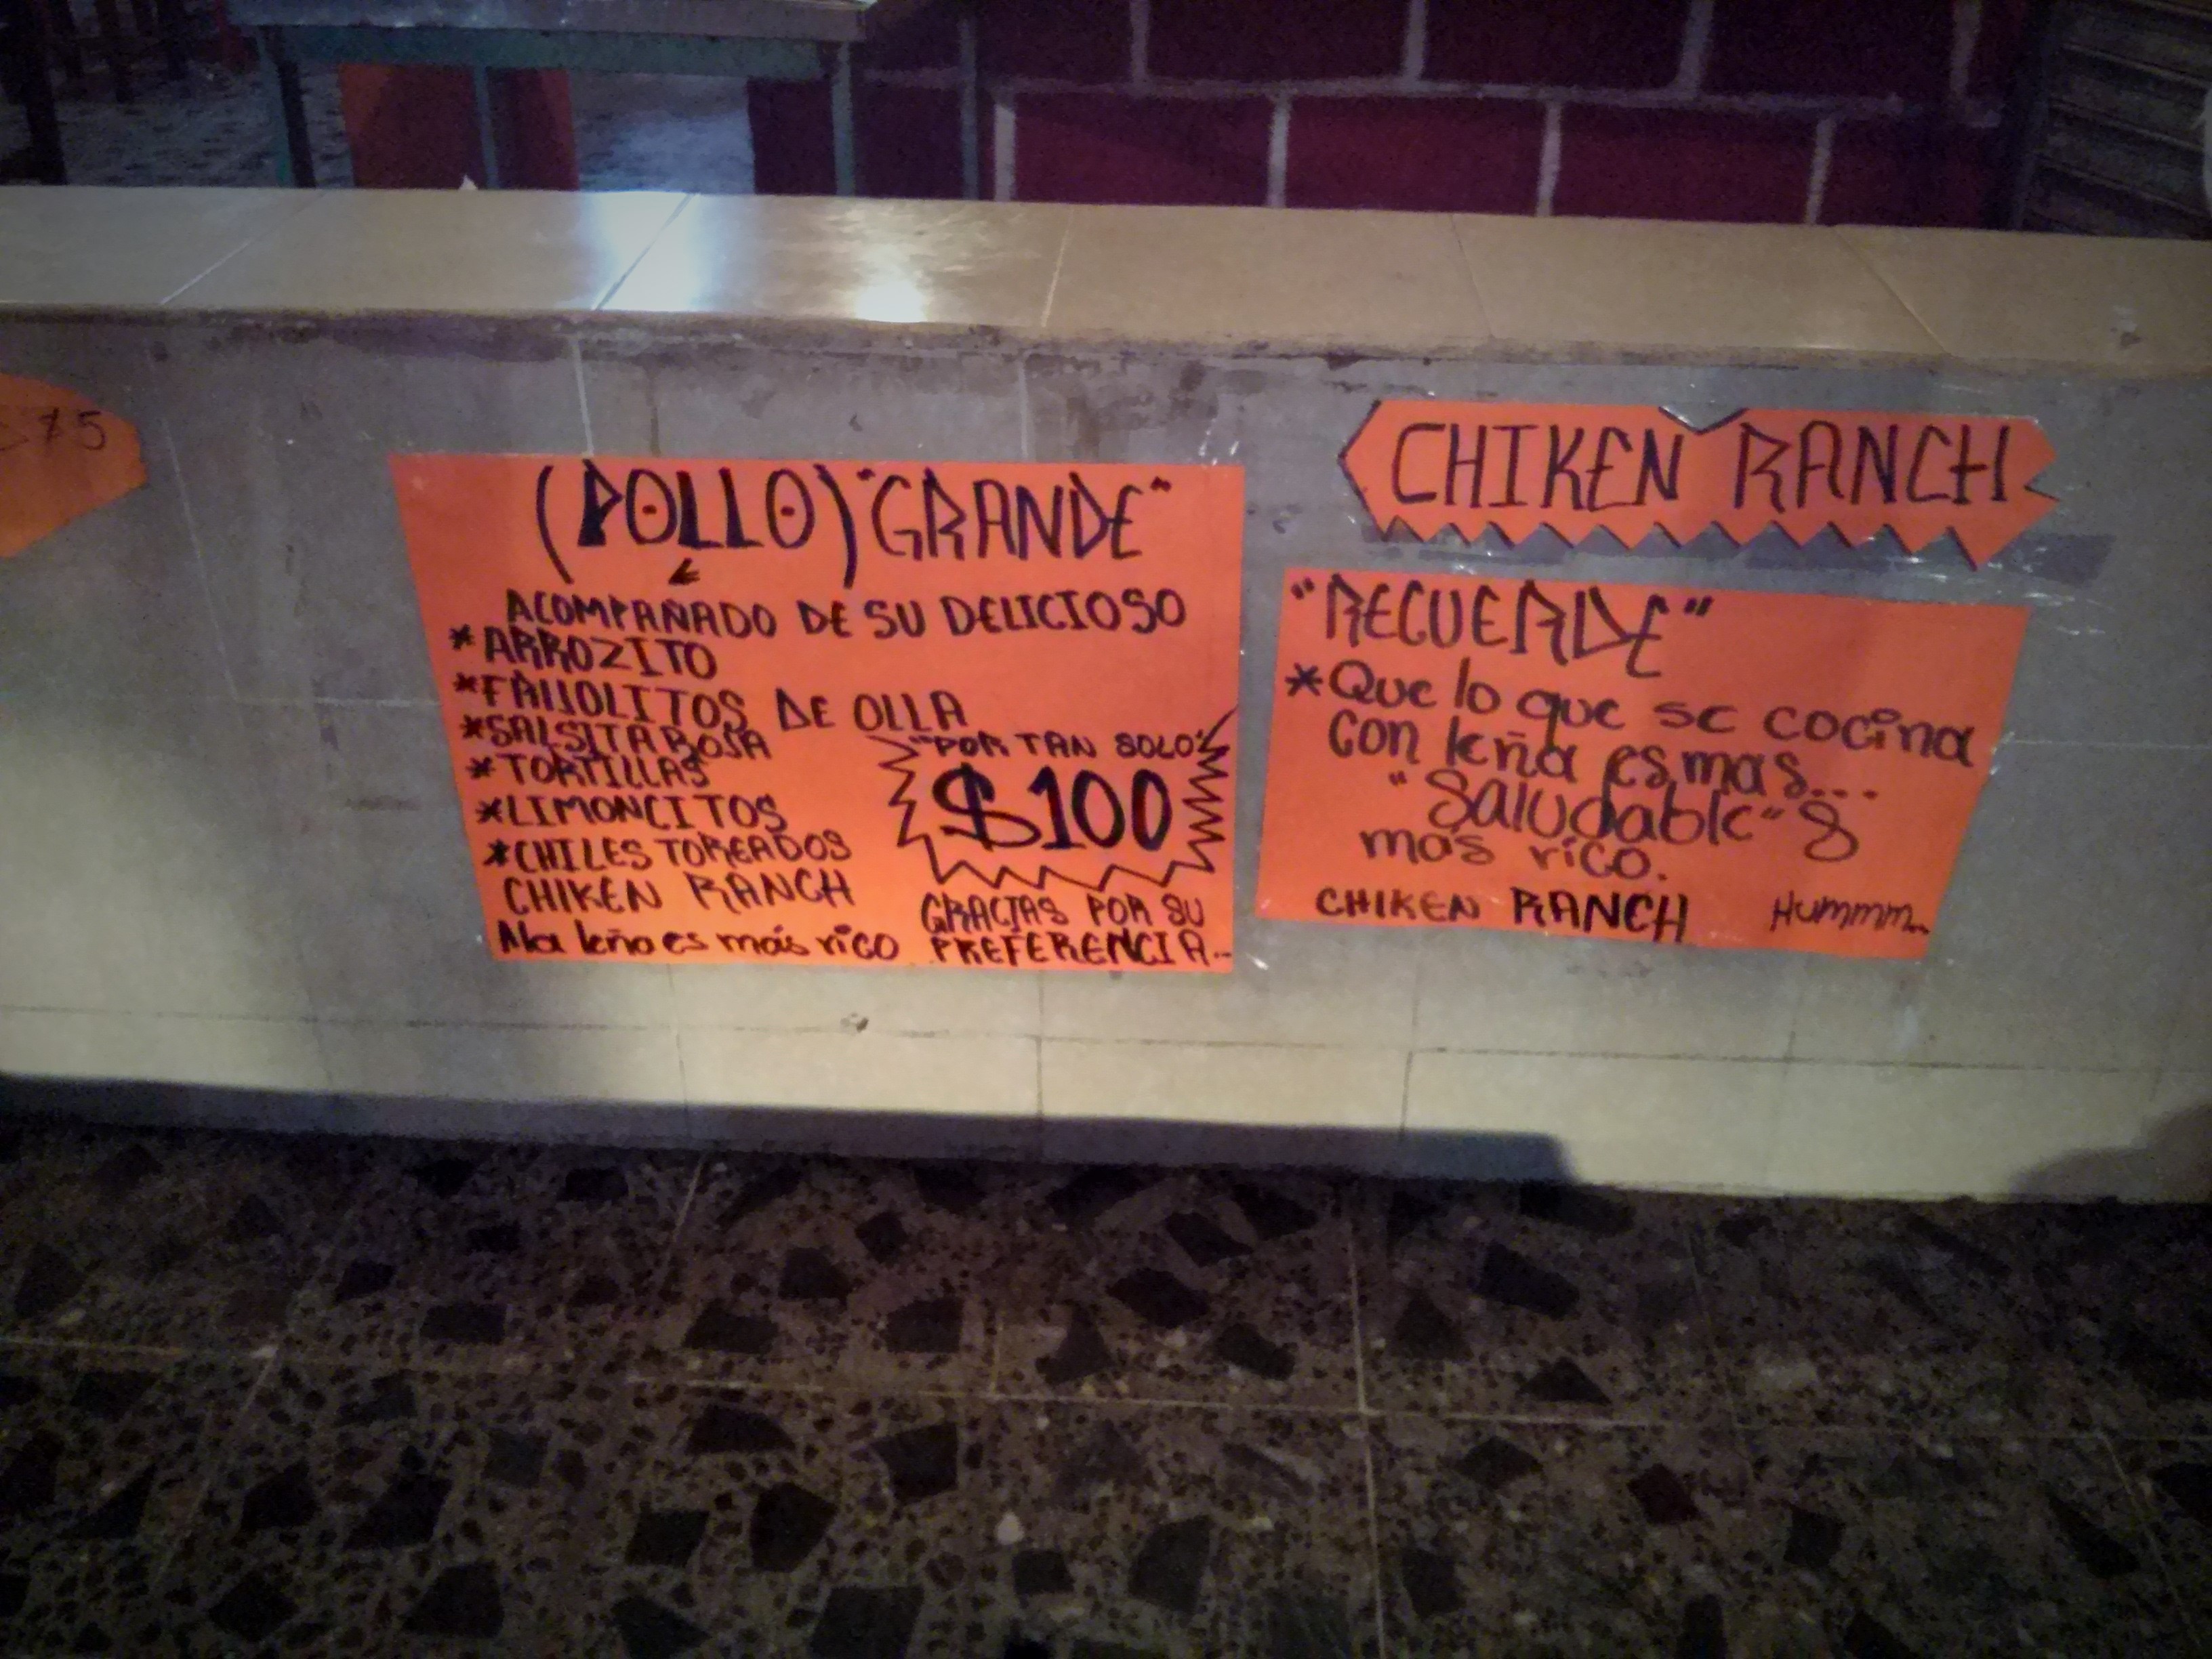 $75
(POLLO) "GRANDE"
ACOMPAÑADO DE SU DELICIOSO
*ARROZITO
*FRIJOLITOS DE OLLA
*SALSITA ROJA
*TORTILLAS
*LIMONCITOS
*CHILES TOREADOS
CHIKEN RANCH
A la leña es más rico
"POR TAN SOLO"
$100
GRACIAS POR SU
PREFERENCIA...
CHIKEN RANCH
"RECUERDE"
*Que lo que se cocina
con leña es mas...
"Saludable" &
más rico.
CHIKEN RANCH Hummm..